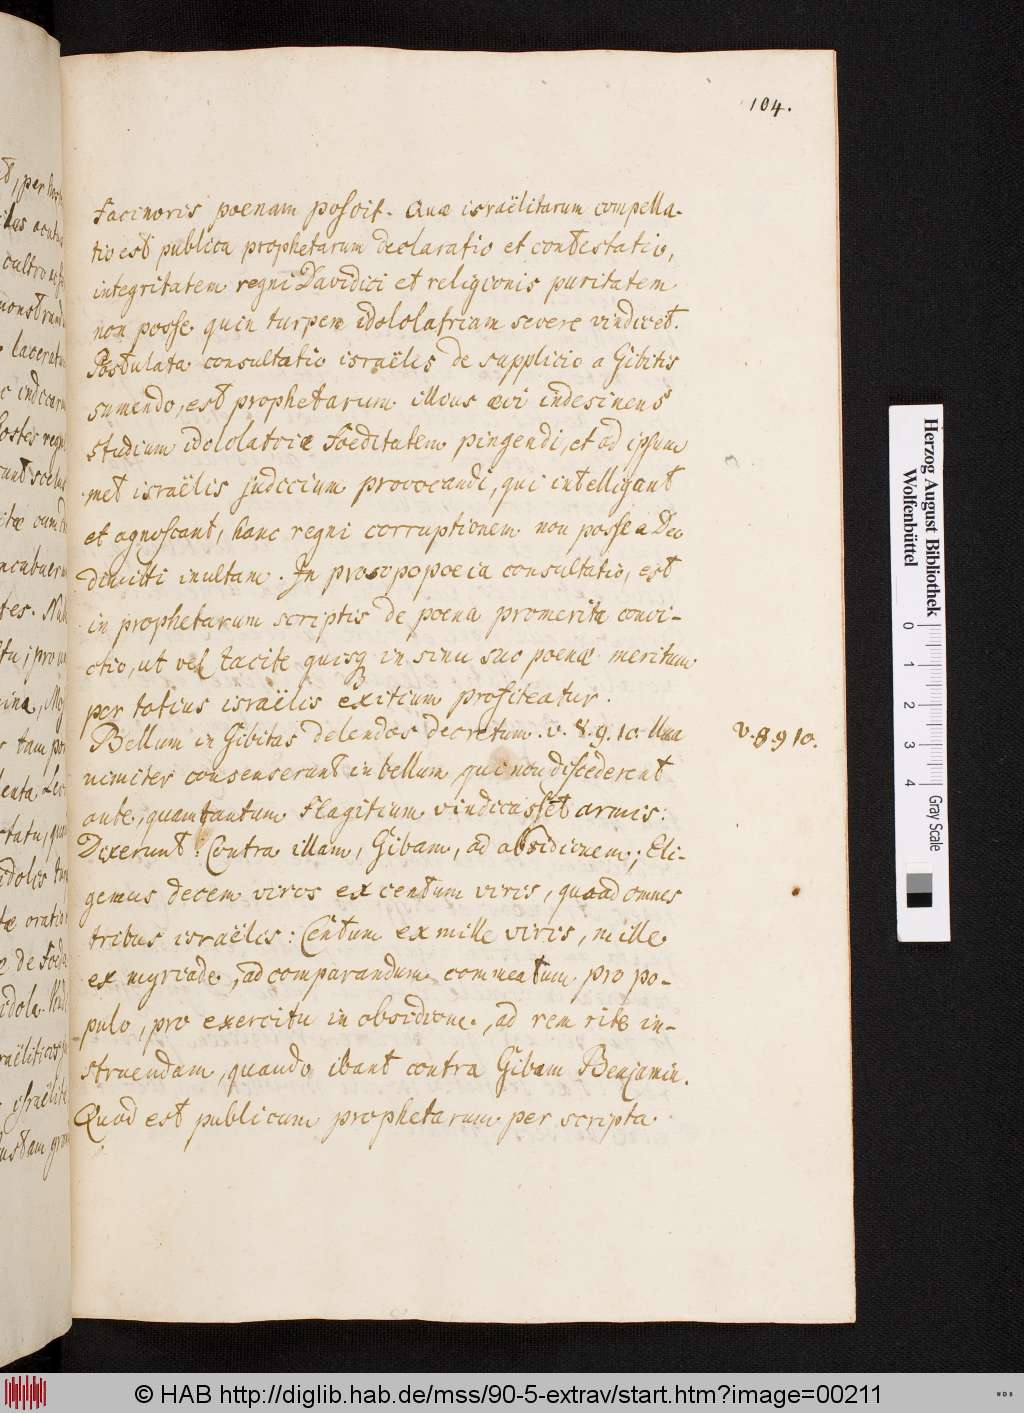 104.
facinoris poenam poscit. Quae israëlitarum compella-
tio est publica prophetarum declaratio et contestatio,
integritatem regni Davidici et religionis puritatem
non posse quin turpem idololatriam severe vindicet.
Postulata consultatio israëlis de supplicio a Gibitis
sumendo, est prophetarum illius aevi indesinens
studium idololatriae foeditatem pingendi, et ad ipsum
met israëlis judicium provocandi, qui intelligant
et agnoscant, hanc regni corruptionem non posse a Deo
dimitti inultam. In prosopopoeia consultatio, est
in prophetarum scriptis de poena promerita convi-
ctio, ut vel tacite quisq in sinu suo poenae meritum
per totius israëlis exitium profiteatur.
Bellum in Gibitas delendos decretum. v. 8. 9. 10. Una
v. 8. 9 10.
nimiter consenserunt in bellum, qui non discederent
ante, quam tantum flagitium vindicasset armis:
Dixerunt: Contra illam, Gibam, ad obsidionem; Eli-
gemus decem viros ex centum viris, quoad omnes
tribus israëlis: Centum ex mille viris, mille
ex myriade, ad comparandum commeatum pro po-
pulo, pro exercitu in obsidione, ad rem rite in-
struendam, quando ibant contra Gibam Benjamin.
Quod est publicum prophetarum per scripta
Herzog August Bibliothek
Wolfenbüttel
0 1 2 3 4
Gray Scale
© HAB http://diglib.hab.de/mss/90-5-extrav/start.htm?image=00211